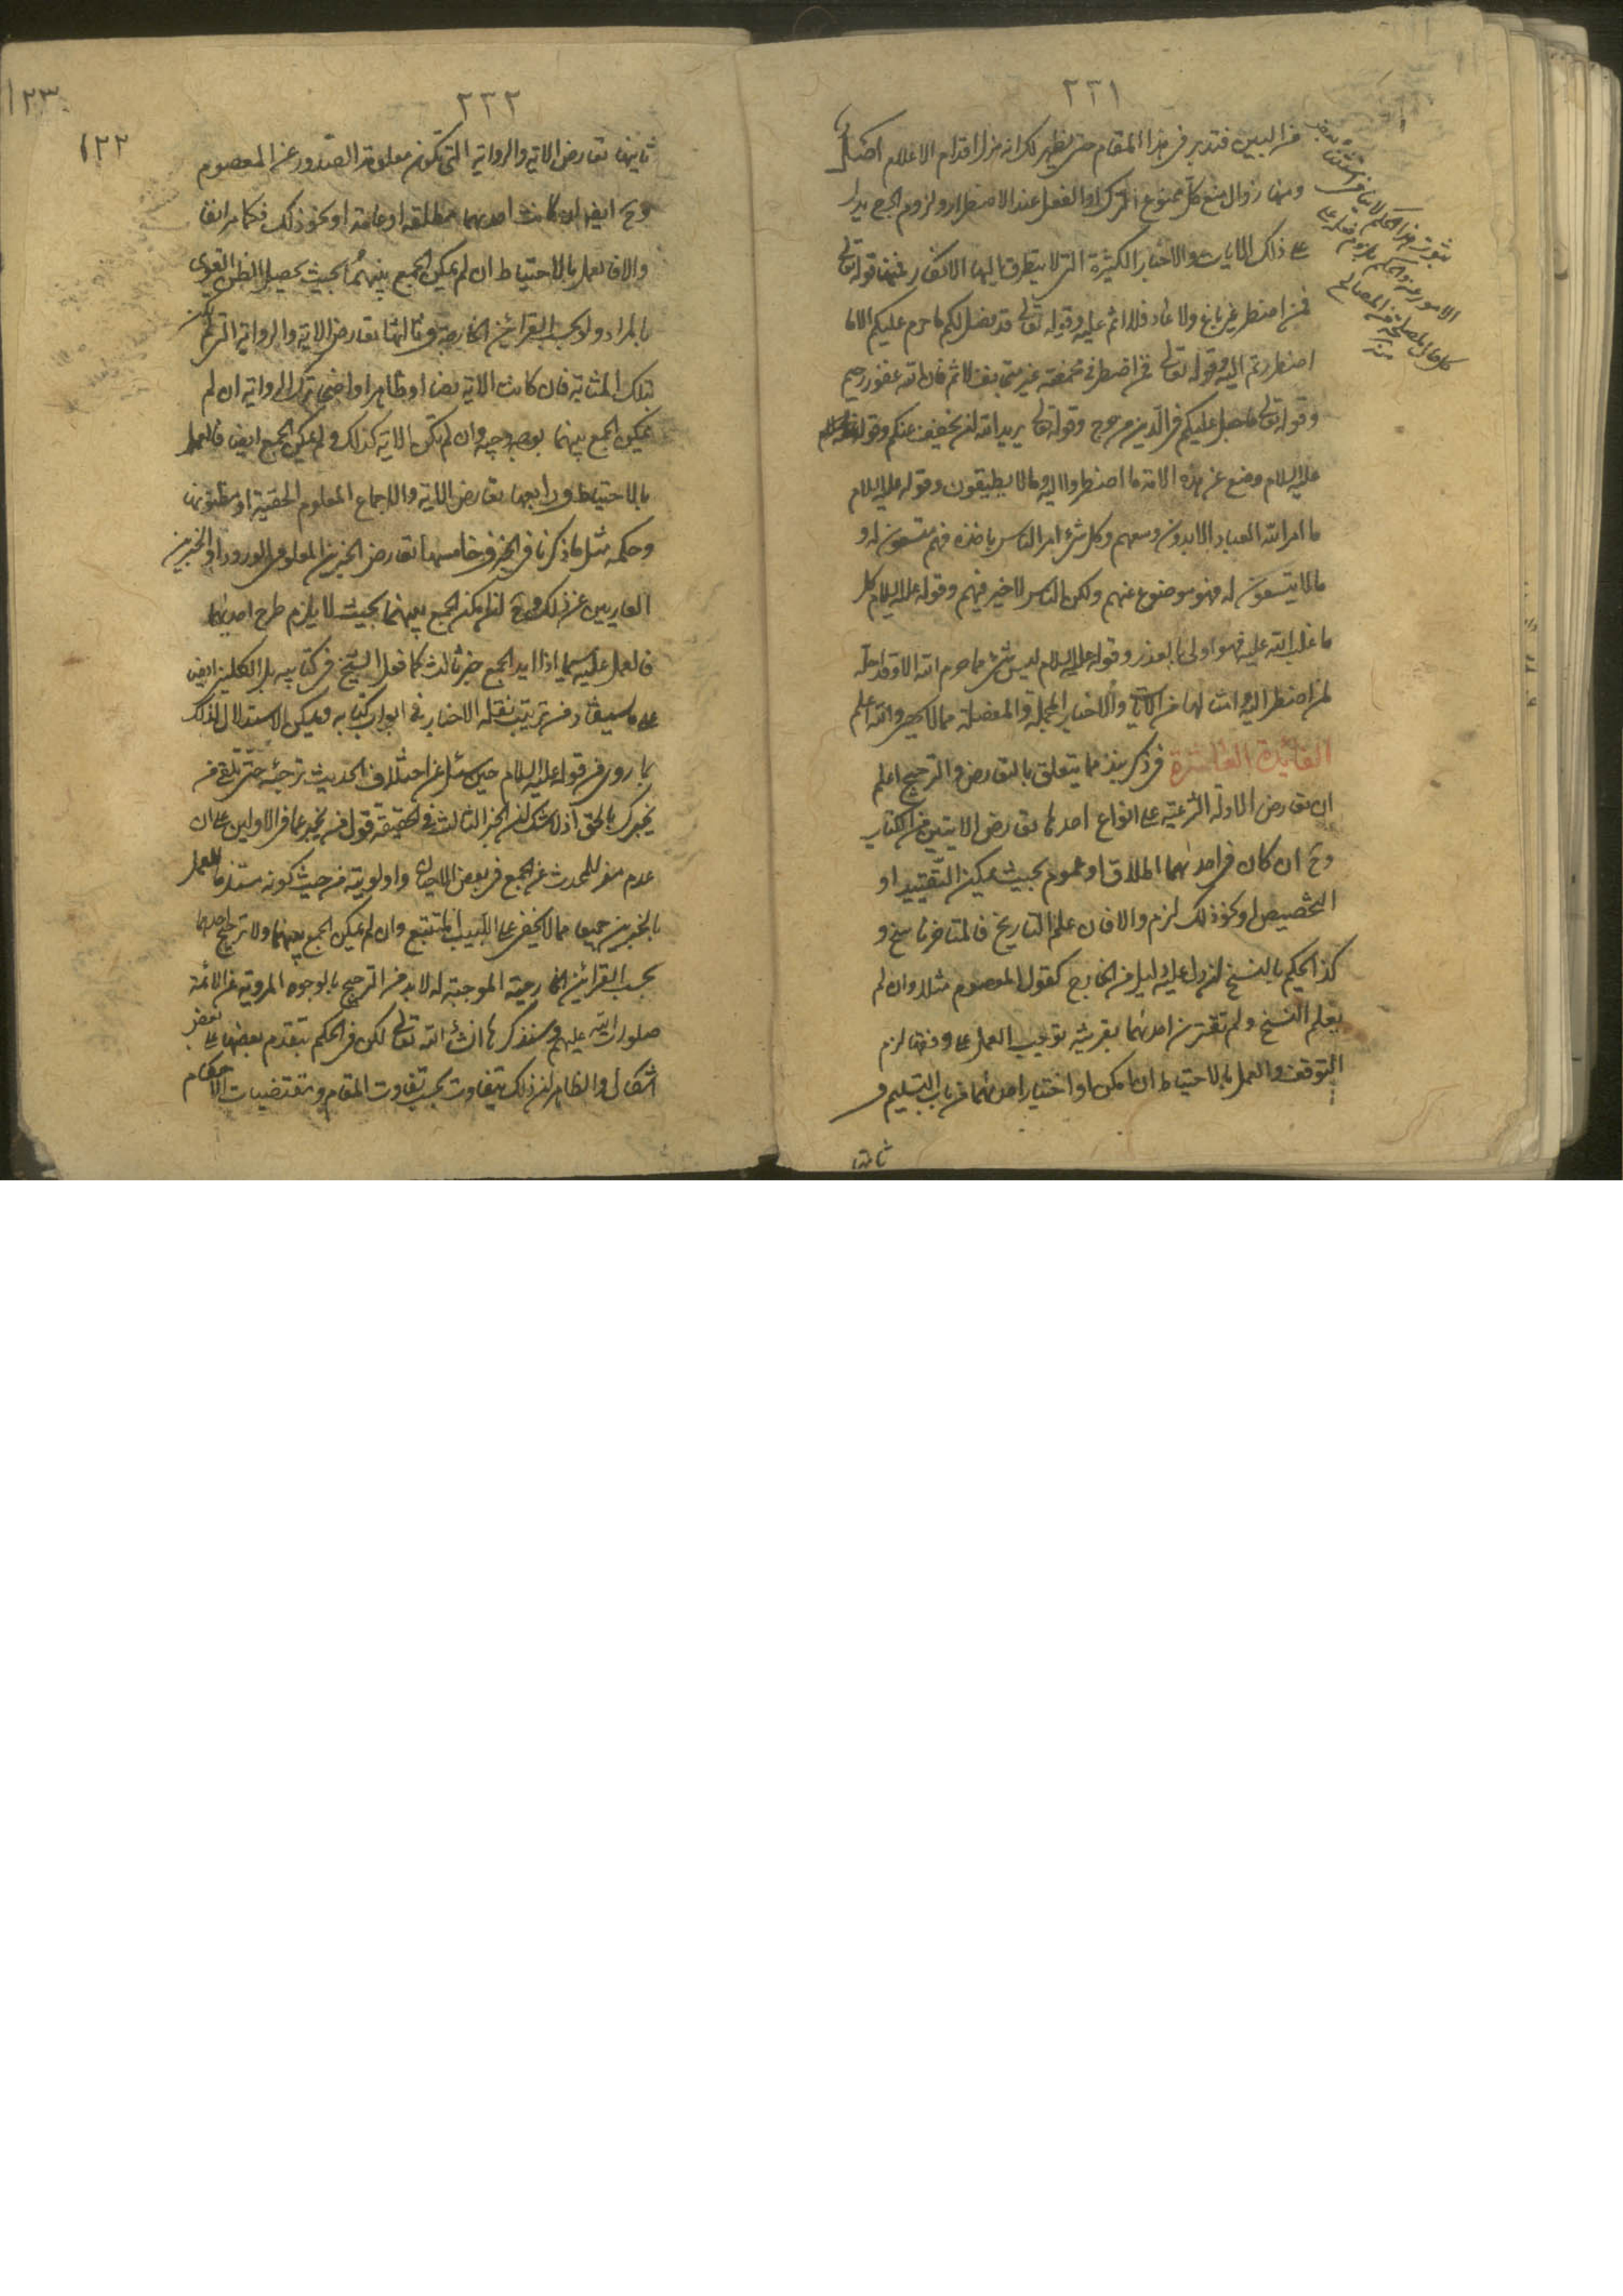 ٢٣١
من البين فتدبر في هذا المقام حتى يظهر لك انه مزل اقدام الاعلام
ومنها زوال منع كل ممنوع الترك او الفعل عند الاضطرار ولزوم الحرج يدل
على ذلك الايات والاخبار الكثيرة التي لا يتطرق اليها الانكار فمنها قوله تعالى
فمن اضطر غير باغ ولا عاد فلا اثم عليه وقوله تعالى قد فصل لكم ما حرم عليكم الا ما
اضطررتم اليه وقوله تعالى فمن اضطر في مخمصة غير متجانف لاثم فان الله غفور رحيم
وقوله تعالى ما جعل عليكم في الدين من حرج وقوله تعالى يريد الله ان يخفف عنكم وقوله
عليه السلام وضع عن هذه الامة ما اضطروا اليه وما لا يطيقون وقوله عليه السلام
ما امر الله العباد الا بدون وسعهم وكل شئ امر الناس باخذه فهم متسعون له و
ما لا يتسعون له فهو موضوع عنهم ولكن الناس لا خير فيهم وقوله عليه السلام كل
ما غلب الله عليه فهو اولى بالعذر وقوله عليه السلام ليس شئ مما حرم الله الا وقد احله
لمن اضطر اليه وامثالها من الآيات والاخبار المجملة والمفصلة مما لا يحصى والله اعلم
الفائدة العاشرة في ذكر نبذ مما يتعلق بالتعارض والترجيح اعلم
ان تعارض الادلة الشرعية على انواع احدها تعارض الايتين من الكتاب
وح ان كان في احدهما اطلاق او عموم بحيث يمكن التقييد او
التخصيص او نحو ذلك لزم والا فان علم التاريخ فالمتاخر ناسخ و
كذا يحكم بالنسخ لو دل عليه دليل من الخارج كقول المعصوم مثلا وان لم
يعلم النسخ ولم تقترن احدهما بقرينة توجب العمل على وفقها لزم
التوقف والعمل بالاحتياط ان امكن او اختيار احدهما من باب التسليم و
ثانيها
٢٣٢
١٢٣
١٢٢
ثانيها تعارض الاية والرواية التي تكون معلومة الصدور عن المعصوم
وح ايضا ان كانت احدهما مطلقة او عامة او نحو ذلك فكما مر ايضا
والا فالعمل بالاحتياط ان لم يمكن الجمع بينهما بحيث يحصل الظن القوي
بالمراد ولو بحسب القرائن الخارجة وثالثها تعارض الاية والرواية التي لم تكن
بتلك المثابة فان كانت الاية نصا او ظاهرا واضحا ترك الرواية ان لم
يمكن الجمع بينهما بوجه وجيه وان لم تكن الاية كذلك ولم يمكن الجمع ايضا فالعمل
بالاحتياط ورابعها تعارض الاية والاجماع المعلوم الحقية او مظنونها
وحكمه مثل ما ذكرنا في الخبر وخامسها تعارض الخبرين المعلومي الورود او الخبرين
العاريين عن ذلك وح ان امكن الجمع بينهما بحيث لا يلزم طرح احدهما
فالعمل عليه سيما اذا ايد الجمع خبر ثالث كما فعل الشيخ في كتابيه بل الكليني ايضا
على ما يستفاد من ترتيب نقله الاخبار في ابواب كتابه ويمكن الاستدلال لذلك
بما روي من قوله عليه السلام حين سئل عن اختلاف الحديث ترجئه حتى تلقى من
يخبرك بالحق اذ لا شك ان الخبر الثالث في الحقيقة قول من يخبر عما في الاولين على ان
عدم مفر للمحدث عن الجمع في بعض الاحيان واولويته من حيث كونه مستلزما للعمل
بالخبرين جميعا مما لا يخفى على اللبيب المتتبع وان لم يمكن الجمع بينهما ولا ترجيح احدهما
بحسب القرائن الخارجية الموجبة له لا بد من الترجيح بالوجوه المروية عن الائمة
صلوات الله عليهم وسنذكرها انشاء الله تعالى لكن في الحكم بتقدم بعضها على بعض
اشكال والظاهر ان ذلك يتفاوت بحسب تفاوت المقام ومقتضيات الاحكام